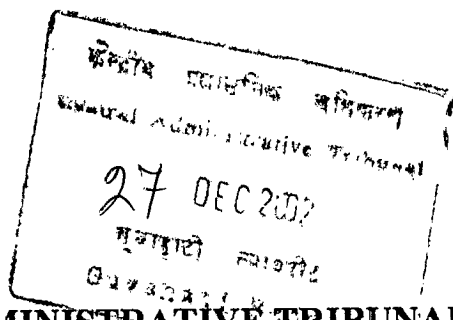 केन्द्रीय प्रशासनिक अधिकरण
Central Administrative Tribunal
27 DEC 2002
गुवाहाटी न्यायपीठ
MINISTRATIVE TRIBUNAL